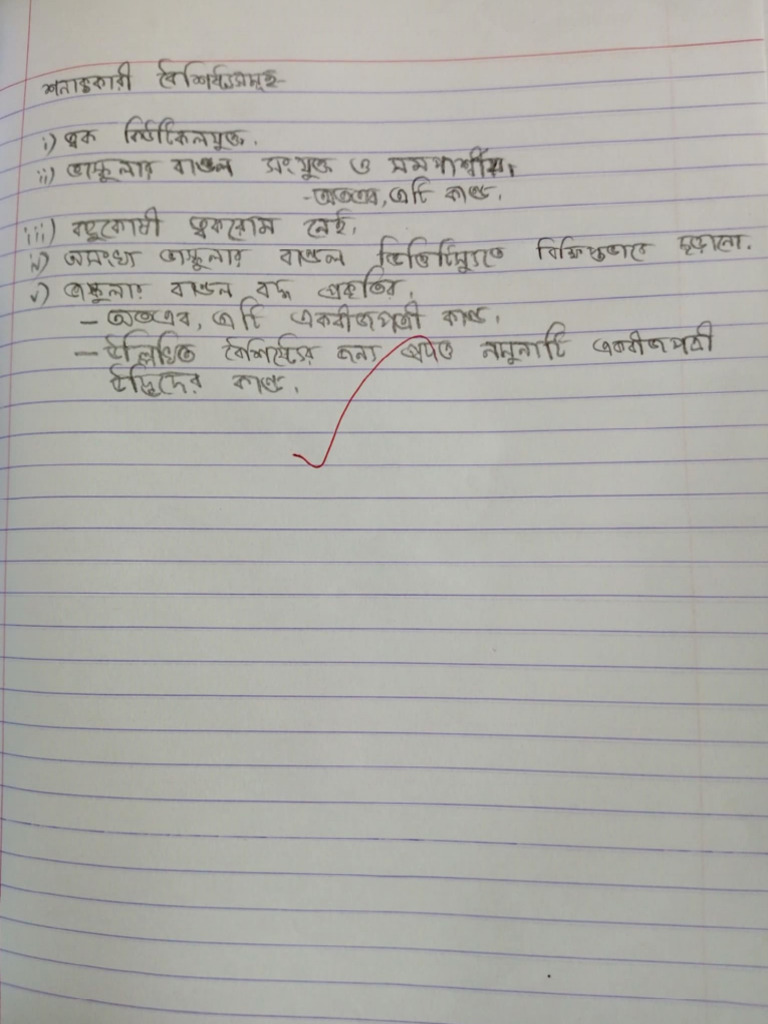 শনাক্তকারী বৈশিষ্ট্যসমূহ
i) ত্বক কিউটিকলযুক্ত.
ii) ভাস্কুলার বান্ডল সংযুক্ত ও সমপার্শ্বীয়।
-অতএব, এটি কাণ্ড.
iii) বহুকোষী ত্বকরোম নেই.
iv) অসংখ্য ভাস্কুলার বান্ডল ভিত্তিটিস্যুতে বিক্ষিপ্তভাবে ছড়ানো.
v) ভাস্কুলার বান্ডল বদ্ধ প্রকৃতির.
- অতএব, এটি একবীজপত্রী কাণ্ড.
- উল্লিখিত বৈশিষ্ট্যের জন্য প্রদত্ত নমুনাটি একবীজপত্রী
উদ্ভিদের কাণ্ড.